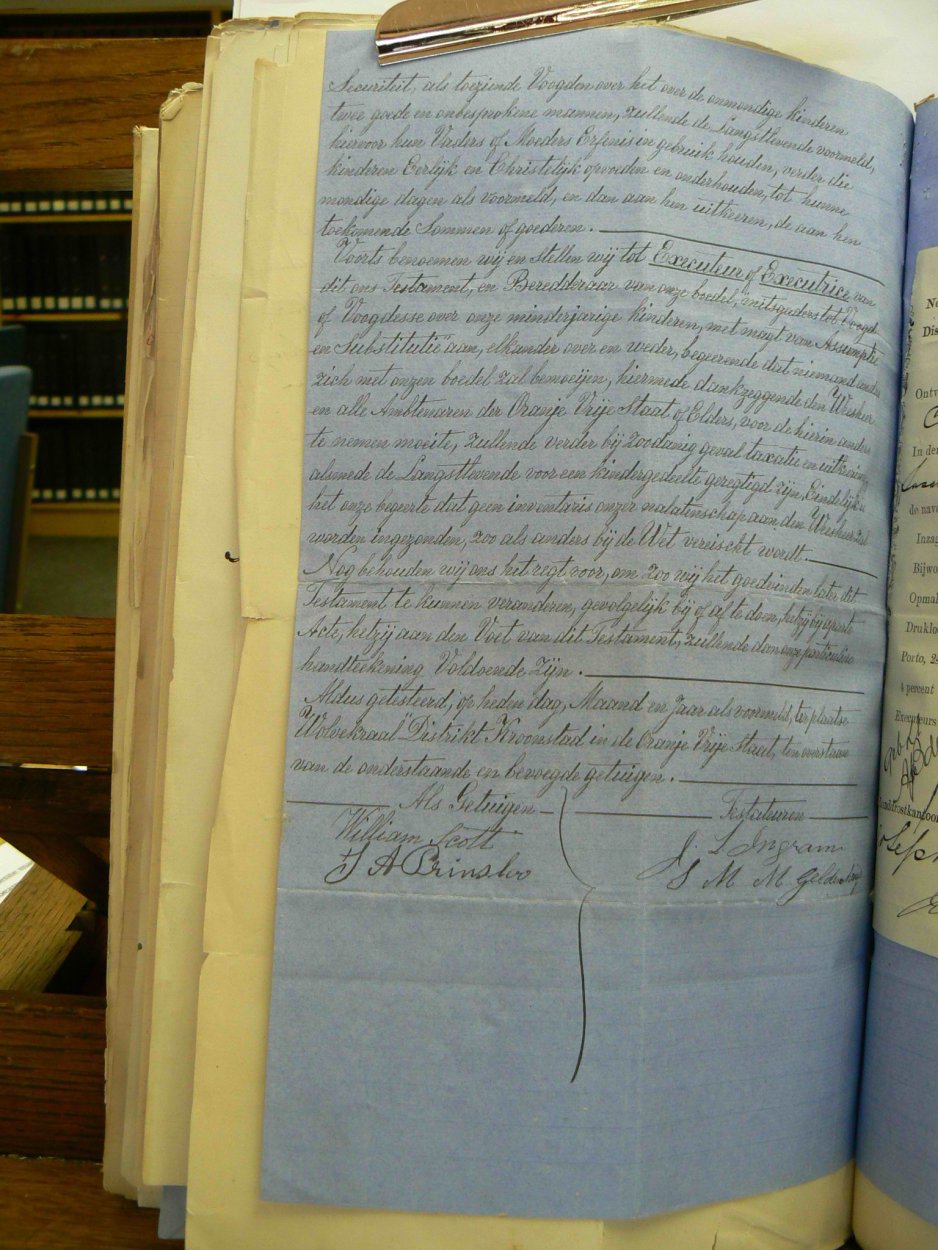 Securiteit, als toeziende Voogden over het over de onmondige kinderen
twee goede en onbesprokene mannen, zullende de Langstlevende voormeld,
hiervoor hun Vaders of Moeders Erfenis in gebruik houden, verder die
kinderen Eerlijk en Christelijk opvoeden en onderhouden, tot hunne
mondige dagen als voormeld, en dan aan hen uitkeeren, de aan hen
toekomende Sommen of goederen.
Voorts benoemen wij en Stellen wij tot Executeur of Executrice van
dit ons Testament, en Beredderaar van onze boedel, mitsgaders tot Voogd
of Voogdesse over onze minderjarige kinderen, met magt van Assumptie
en Substitutie aan, elkander over en weder, begeerende dat niemand anders
zich met onzen boedel zal bemoeijen, hiermede dankzeggende den Weesheer
en alle Ambtenaren der Oranje Vrije Staat of Elders, voor de hierin anders
te nemen moeite, zullende verder bij zoodanig geval taxatie en uitkeering
alsmede de Langstlevende voor een kindergedeelte geregtigd zijn, Eindelijk is
het onze begeerte dat geen inventaris onzer nalatenschap aan den Weesheer zal
worden ingezonden, zoo als anders bij de Wet vereischt wordt.
Nog behouden wij ons het regt voor, om zoo wij het goedvinden later dit
Testament te kunnen veranderen, gevolgelijk bij of af te doen, hetzij bij aparte
Acte, hetzij aan den Voet van dit Testament, zullende dan onze particuliere
handteekening Voldoende Zijn.
Aldus getesteerd, op heden dag, Maand en Jaar als voormeld, ter plaatse
"Wolvekraal" Distrikt Kroonstad in de Oranje Vrije Staat, ten overstaan
van de onderstaande en bevoegde getuigen.
Als Getuigen Testateuren
William Scott J. L Ingram
A Prinsloo S M M Gelden
No
Dis
Ontv
In der
de nave
Inzag
Bijwo
Opmak
Druklo
Porto, 2
4 percent
Executeurs
Landdrostkantoor
Sep